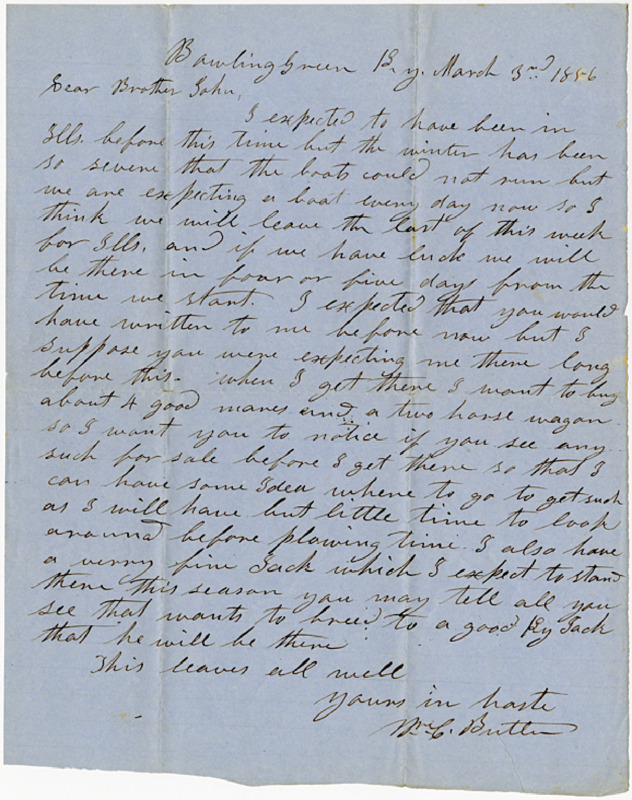 Bowling Green Ky. March 3rd 1856
Dear Brother John,
I expected to have been in
Ills. before this time but the winter has been
so severe that the boats could not run but
we are expecting a boat every day now so I
think we will leave the last of this week
for Ills. and if we have luck we will
be there in four or five days from the
time we start. I expected that you would
have written to me before now but I
suppose you were expecting me there long
before this. when I get there I want to buy
about 4 good mares and a two horse wagon
so I want you to notice if you see any
such for sale before I get there so that I
can have some Idea where to go to get such
as I will have but little time to look
around before plowing time. I also have
a verry fine Jack which I expect to stand
there this season you may tell all you
see that wants to breed to a good Ky Jack
that he will be there
This leaves all well
Yours in haste
Wm C. Butler